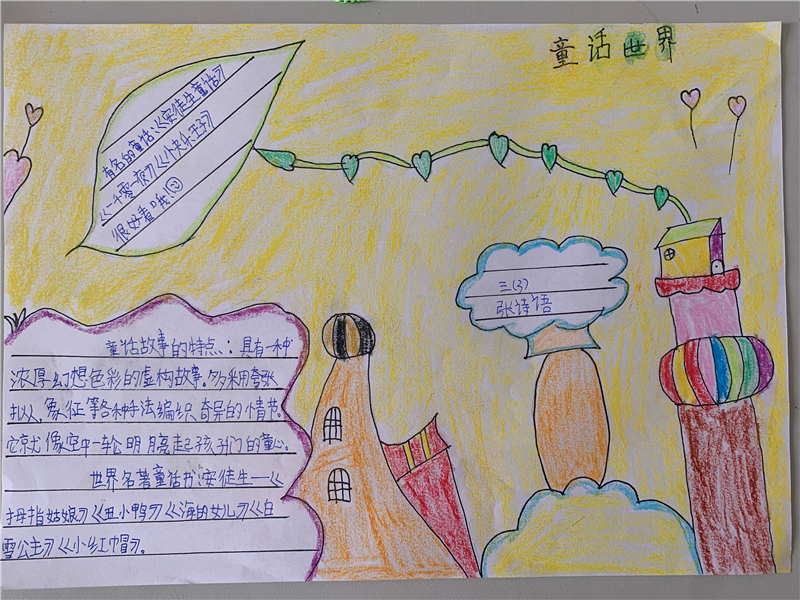 童话世界
有名的童话:《安徒生童话》
《一千零一夜》《快乐王子》
很好看哦!
三(3)
张诗语
童话故事的特点:具有一种
浓厚幻想色彩的虚构故事。多采用夸张
拟人、象征等各种手法编织奇异的情节。
它就像空中一轮明月亮起孩子们的童心。
世界名著童话书:安徒生—《
拇指姑娘》《丑小鸭》《海的女儿》《白
雪公主》《小红帽》。